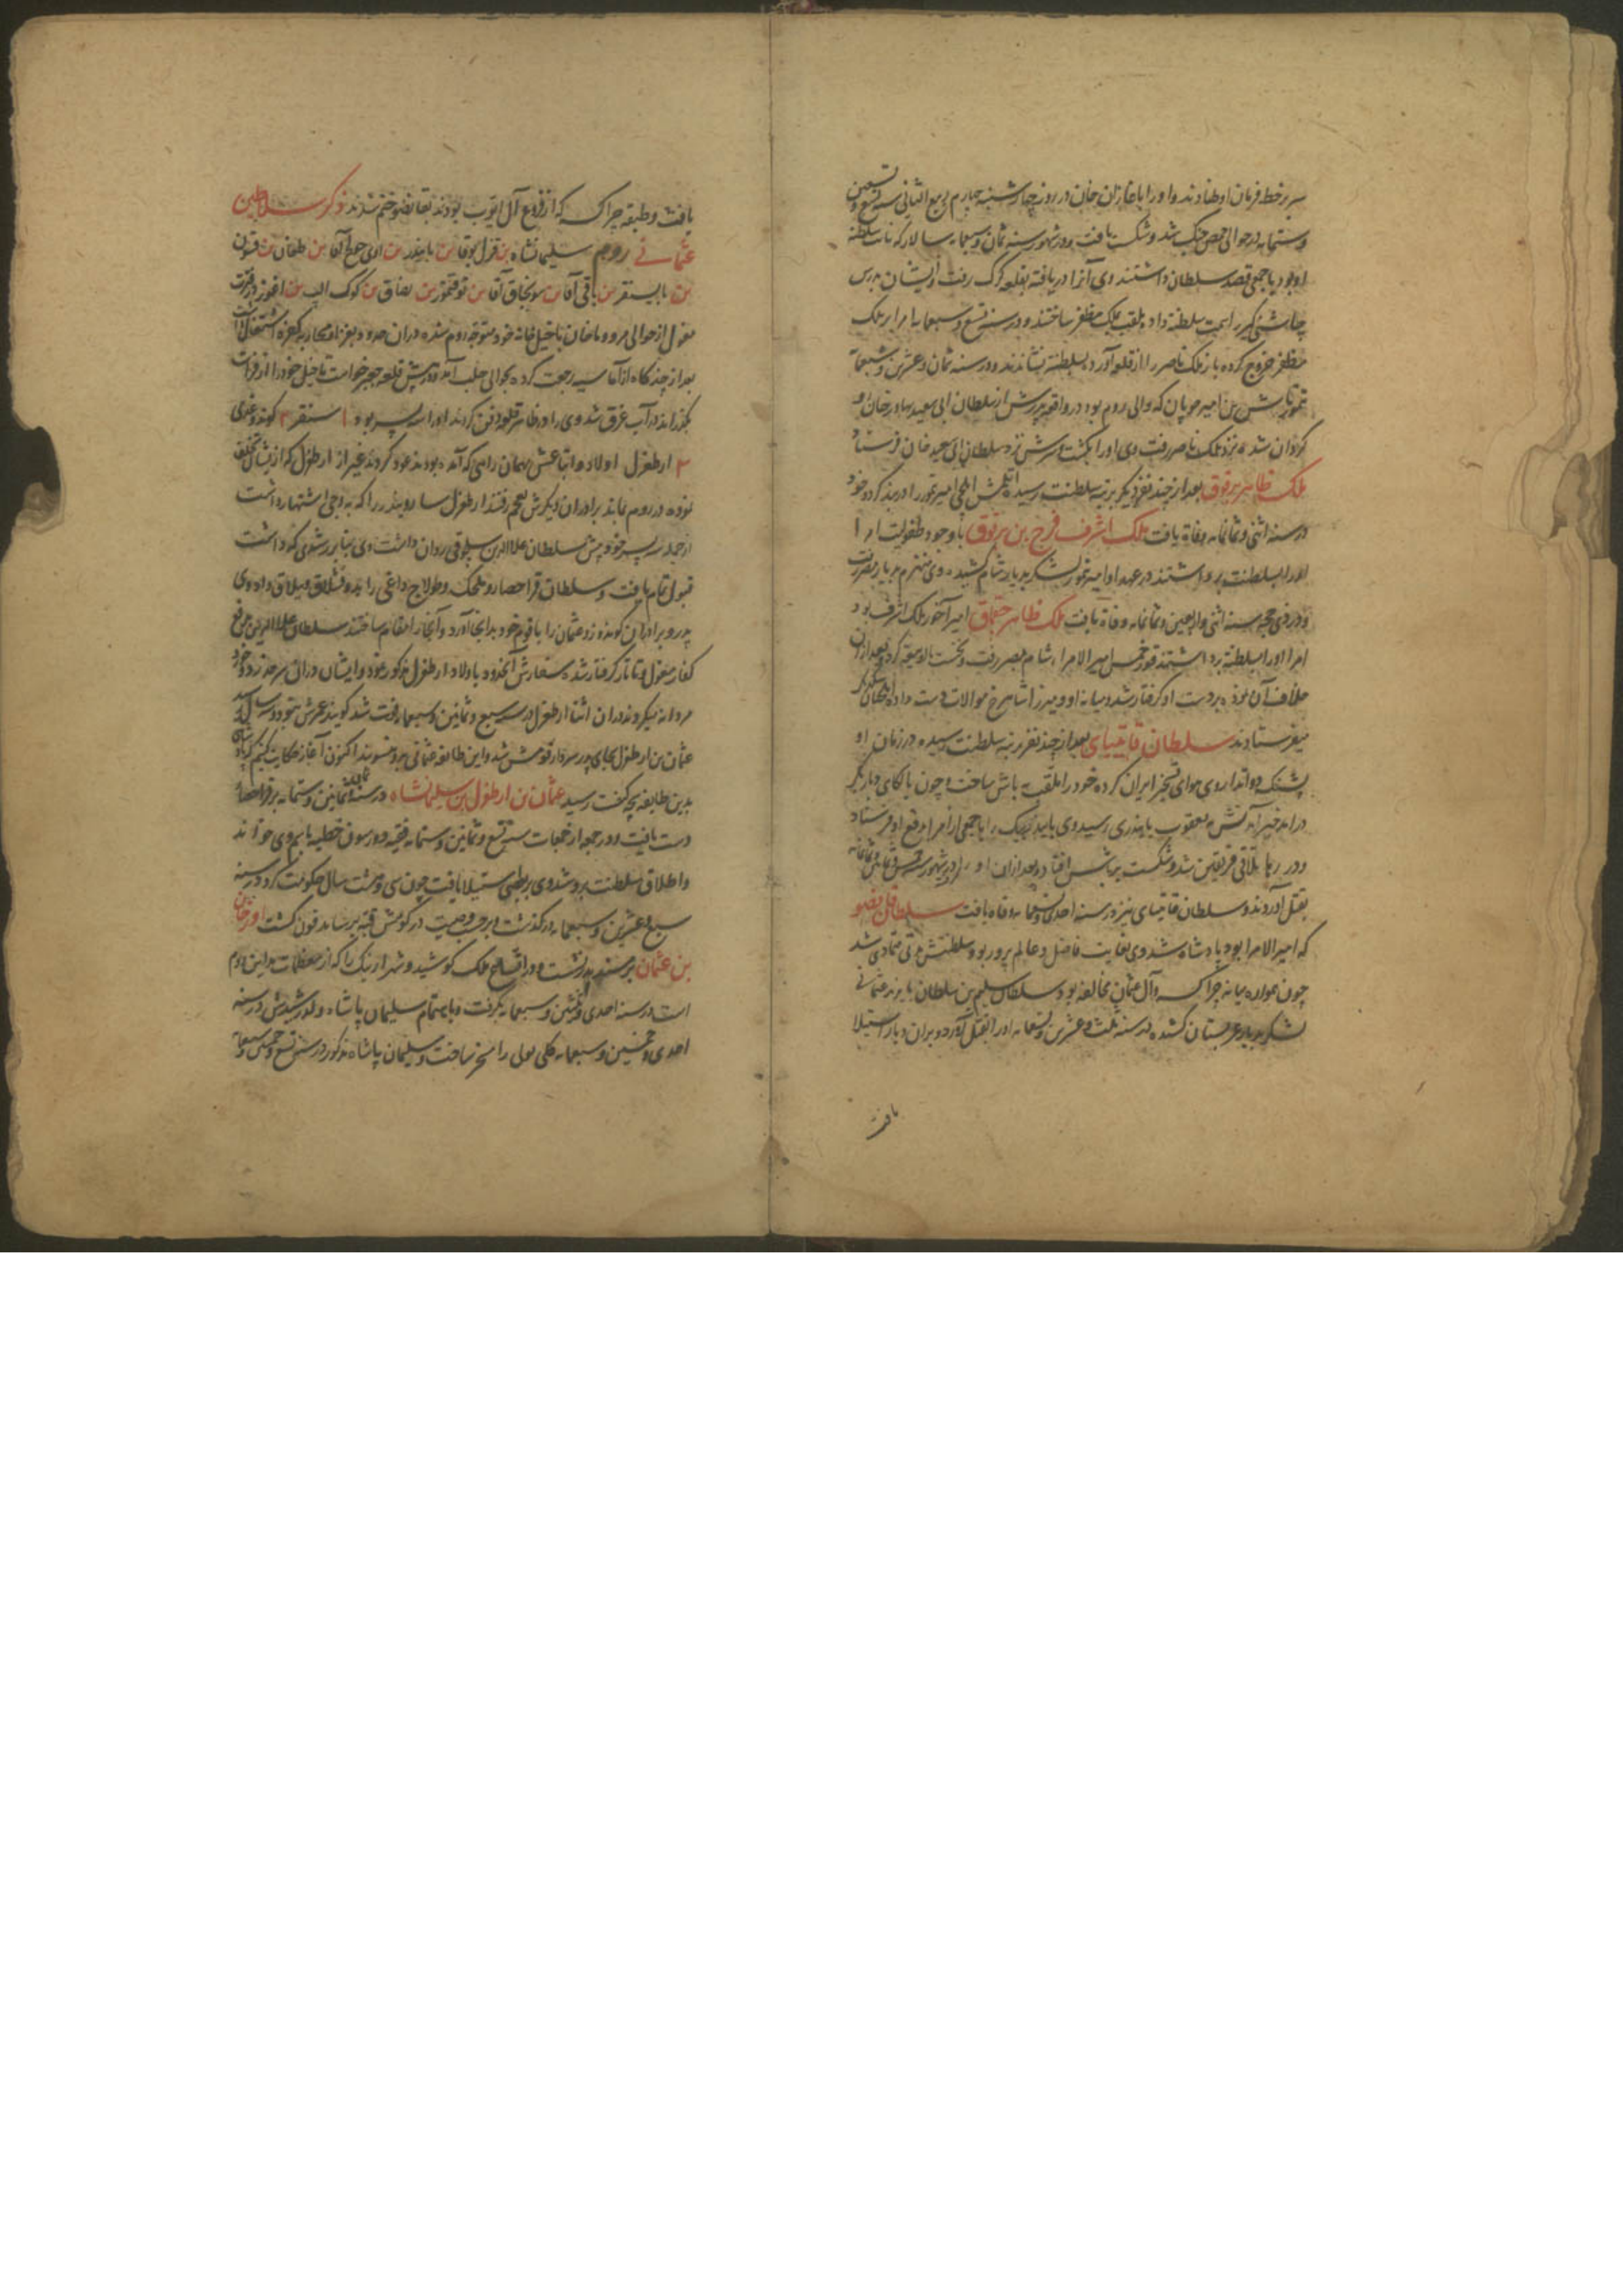 سر بر خط فرمان او نهادند و او را با غازان خان در روز چهارشنبه چهارم ربیع الثانی سنه تسع و تسعین
و ستمایه در حوالی حمص جنگ شد و شکست یافت و در شهور سنه ثمان و سبعمایه سالار که نایب سلطنه
او بود با جمعی قصد سلطان داشتند وی آنرا دریافته بقلعه کرک رفت و ایشان بیبرس
چاشنی گیر را سمت سلطنة داده بلقب ملک مظفر ساختند و در سنه تسع و سبعمایه امرا بر ملک
مظفر خروج کرده باز ملک ناصر را از قلعه آورده بسلطنة نشاندند و در سنه ثمان و عشرین و سبعمایة
تمورتاش بن امیر چوپان که والی روم بود در واقعه پدرش از سلطان ابی سعید بهادر خان رو
کردان شده نزد ملک ناصر رفت وی او را بکشت و سرش نزد سلطان ابی سعید خان فرستاد
ملک ظاهر برقوق بعد از چند نفر دیگر برتبه سلطنت رسید ایلچی امیر تمور را در بند کرده خود
در سنه اثنی و ثمانمایه وفاة یافت ملک اشرف فرج بن برقوق با وجود طفولیت امرا
او را بسلطنت برداشتند در عهد او امیر تمور لشکر بدیار شام کشید وی منهزم بدیار مصر رفت
و در ذی حجه سنه اثنی و اربعین و ثمانمایه وفاة یافت ملک ظاهر چقماق امیر آخور ملک اشرف بود
امرا او را بسلطنة برداشتند قورخمس امیر الامرا شام بمصر رفت و نخست با او بیعة کرد و بعد از آن
خلاف آن نموده بر دست او کرفتار شد و میانه او و میرزا شاهرخ موالات دست داده ایلچیان بیکدیکر
میفرستادند سلطان قایتبای بعد از چند نفر برتبه سلطنت رسیده در زمان او
یشبک دواتدار وی هوای تسخیر ایران کرده خود را ملقب باش ساخت و چون با الکای دیاربکر
درامد خبر آمدنش به یعقوب بایندری رسید وی بایندر بیک را با جمعی از امرا بدفع او فرستاد
و در رها تلاقی فریقین شد و شکست بر باش افتاد و بعد از ان او را در شهور سنه خمس و ثمانین و ثمانمایه
بقتل آوردند و سلطان قایتبای نیز در سنه احدی و تسعمایه وفاة یافت سلطان قانصو
که امیر الامرا بود پادشاه شد وی بغایت فاضل و عالم پرور بود و سلطنتش مدتی متمادی شد
چون همواره میانه چراکسه و آل عثمان مخالفه بود سلطان سلیم بن سلطان بایزید عثمانی
لشکر بدیار عربستان کشیده در سنه ثلث و عشرین و تسعمایه او را بقتل آورد و بر ان دیار استیلا
یافت
یافت و طبقه چراکسه که از فروع آل ایوب بودند بقانصو ختم شدند ذکر سلاطین
عثمانی روم سلیمانشاه بن قزل بوقا بن بایندر بن ای قتلغ آقا بن طغان بن قتون
بن بایسنقر بن باقی آقا بن سونجاق آقا بن توقتمور بن یصاق بن کوک الب بن اغوز در فترت
مغول از حوالی مرو و ماخان با خیل خانه خود متوجه روم شده در ان حدود بغزا و محاربه کفره اشتغال داشت
بعد از چند گاه از آماسیه رجعت کرده بحوالی حلب آمده در پیش قلعه جعبر خواست تا خیل خود را از فرات
بگذراند در آب غرق شد وی را در ظاهر قلعه دفن کردند او را سه پسر بود ۱ سنقر ۲ کوندوغدی
۳ ارطغرل اولاد و اتباعش بهمان راهی که آمده بودند عود کردند غیر از ارطغرل که از ایشان تخلف
نموده در روم بماند برادران دیگرش بعجم رفتند ارطغرل ساروبندر را که به اشتهار داشت
از جمله سه پسر خود پیش سلطان علاءالدین سلجوقی روان داشت وی بنابر رشدی که داشت
قبول تمام یافت و سلطان قراحصار و بلجک و طومالج داغی را بدو قشلاق و ییلاق داد وی
پدر و برادران کوندوز و عثمان را با قوم خود بدانجا آورد و آنجا را مقام ساختند سلطان علاءالدین بدفع
کفار مغول و تاتار گرفتار شده سفارش آنحدود باولاد ارطغرل مذکور نمود و ایشان در ان سرحد زد و خورد
مردانه میکردند در ان اثنا ارطغرل در سنه سبع و ثمانین و ستمایه فوت شد گویند عمرش بنود و سه رسیده
عثمان بن ارطغرل بجای پدر سردار قومش شد و این طایفه عثمانی بدو منسوبند اکنون آغاز حکایت کنیم که پادشاهی
بدین طایفه بچه کیفیت رسید عثمان بن ارطغرل بن سلیمانشاه در سنه ثمان و ثمانین و ستمایه بر قراحصار
دست یافت و در جمعه از جمعات سنه تسع و ثمانین و ستمایه فقیه دورسون خطبه بنام وی خواند
و اطلاق سلطنت بر او شد وی بر بعضی استیلا یافت چون سی و هشت سال حکومت کرد در سنه
سبع و عشرین و سبعمایه درگذشت و بر حسب وصیت در کومش قبه بروسا مدفون گشت اورخان
بن عثمان بر مسند پدر نشست و در افتتاح ملک کوشید و شهر ازنیک را که از معظمات مداین روم
است در سنه احدی و ثلثین و سبعمایه بگرفت و باهتمام سلیمان پاشاه ولد رشیدش در سنه
احدی و خمسین و سبعمایه کلی بولی را مسخر ساخت و سلیمان پاشاه مذکور در سنه تسع و خمسین و سبعمایة